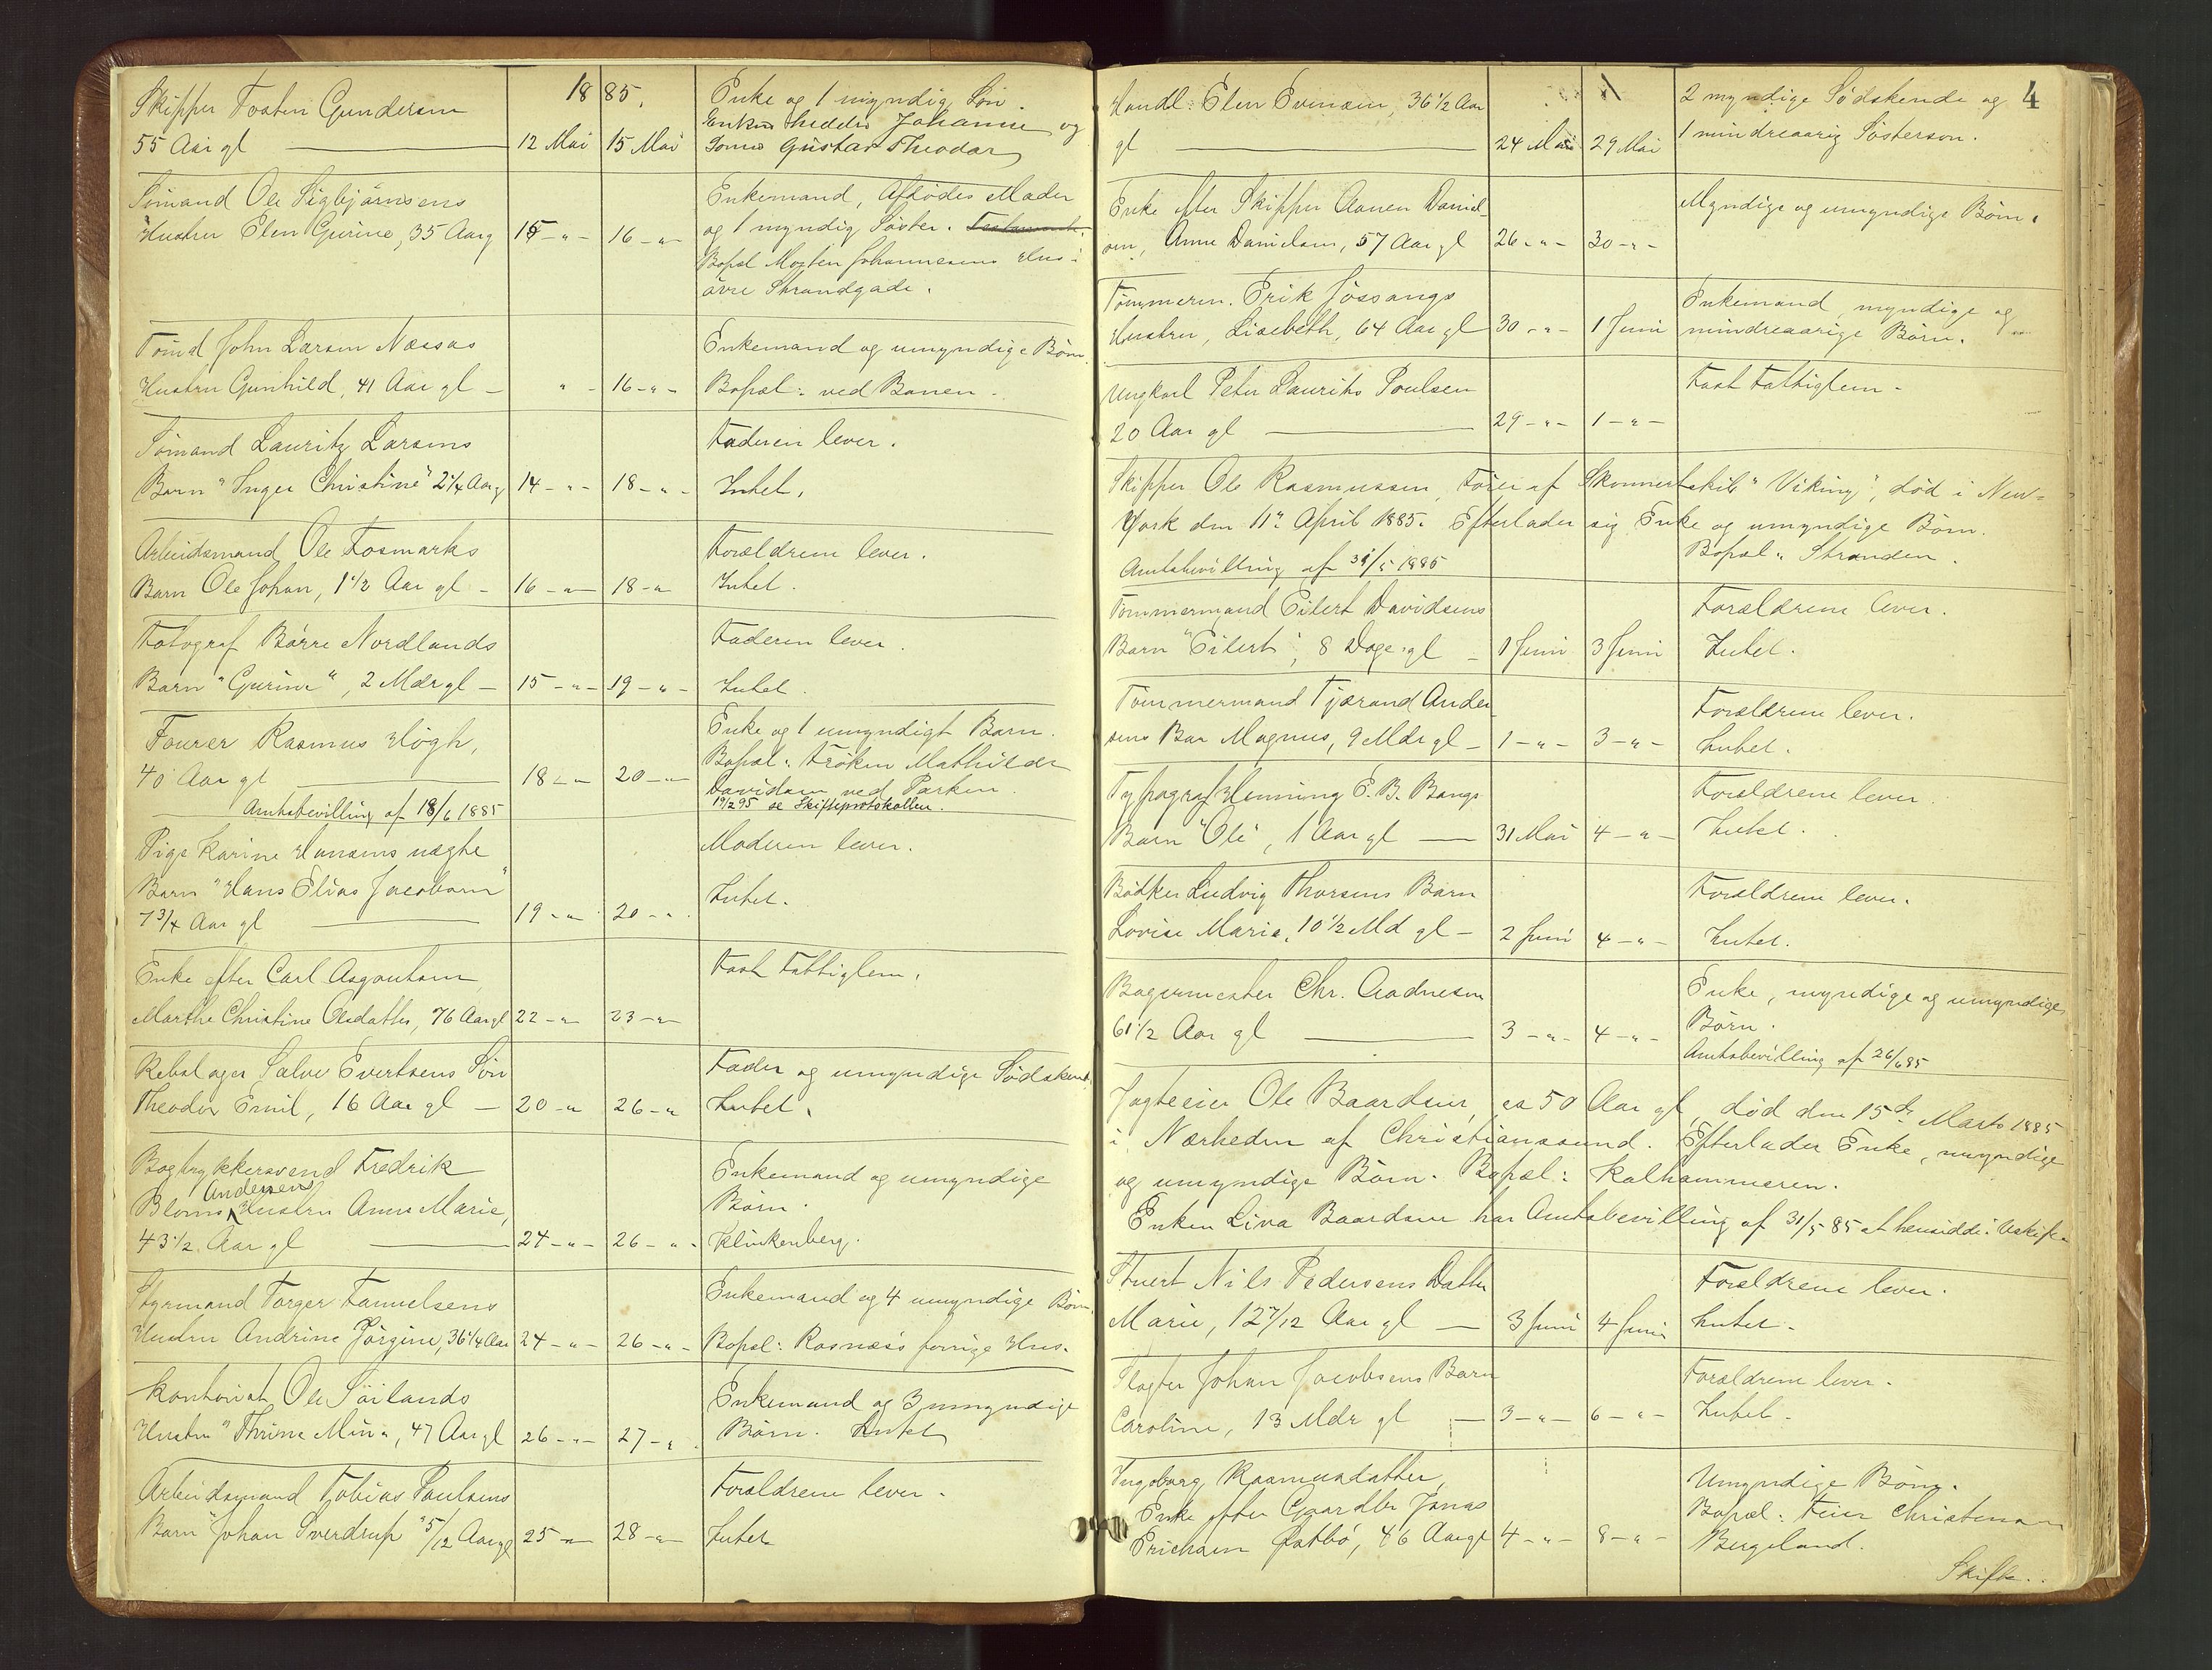 Skipper Tosten Gundersen
55 Aar gl
1885.
12 Mai 15 Mai
Enke og 1 myndig Søn.
Enkens heder Johanne og
Sønnens Gustav Theodor
Sömand Ole Sigbjörnsens
Hustru Elen Gurine, 35 Aar g
15 - " - 16 - " -
Enkemand, Afdødes Moder
og 1 myndig Søster.
Bopæl Morten Johannesens Hus i
övre Strandgade.
Tömd John Larsen Næsaas
Hustru Gunhild, 41 Aar gl -
" - 16 - " -
Enkemand og umyndige Børn.
Bopæl: ved Banen.
Sömand Lauritz Larsens
Barn "Inger Christine" 2 1/4 Aar g
14 - " - 18 - " -
Faderen lever.
Intet.
Arbeidsmand Ole Fosmarks
Barn Ole Johan, 1 1/2 Aar gl -
16 - " - 18 - "
Forældrene lever.
Intet.
Fotograf Börre Nordlands
Barn "Gurine", 2 Mdr gl -
15 - " - 19 - " -
Faderen lever.
Intet.
Fourer Rasmus Högh,
40 Aar gl
Amtsbevilling af 18/6 1885
18 - " 20 - "
Enke og 1 umyndigt Barn.
Bopæl: Fröken Mathilde
Davidsen ved Parken.
19/2 95 se Skifteprotokollen.
Pige Karine Hansens uægte
Barn "Hans Elias Jacobsen"
7 3/4 Aar gl
19 - " 20 - " .
Moderen lever.
Intet.
Enke efter Carl Asgautsen,
Marthe Christine Olsdatter, 76 Aar gl
22 - " 23 - "
Fast Fattiglem.
Rebslager Salve Evertsens Sön
Theodor Emil, 16 Aar gl -
20 - " 26 - "
Fader og umyndige Sødskend.
Intet.
Bogtrykkersvend Fredrik
Andersens
Bloms Hustru Anne Marie,
43 1/2 Aar gl
24 - " - 26 - " .
Enkemand og umyndige
Børn.
Klinkenberg.
Styrmand Torger Samuelsens
Hustru Andrine Jörgine, 36 1/4 Aar
24 - " - 26 - " -
Enkemand og 4 umyndige Børn.
Bopæl: Rosnæs's forrige Hus.
Kontorist Ole Söilands
Hustru "Thrine Mina, 47 Aar gl
26 - " - 27 - " .
Enkemand og 3 umyndige
Børn. Intet
Arbeidsmand Tobias Paulsens
Barn "Johan Sverdrup" 5/12 Aar gl
25 - " 28 - "
Forældrene lever.
Intet
4
Handl. Elen Evensen, 36 1/2 Aar
gl
24 Mai 29 Mai
2 myndige Södskende og
1 mindreaarig Søstersøn.
Enke efter Skipper Aanen Daniel-
sen, Anne Danielsen, 57 Aar gl
26 - " - 30 - " -
Myndige og umyndige Børn.
Tömmerm. Erik Jössangs
Hustru, Lisebeth, 64 Aar gl
30 - " - 1 Juni
Enkemand, myndige og
mindreaarige Børn.
Ungkarl Peter Lauritz Poulsen
20 Aar gl
29 - " - 1 - " -
Fast Fattiglem.
Skipper Ole Rasmussen, Förer af Skonnertskib "Viking", död i New-
York den 11te April 1885. Efterlader sig Enke og umyndige Børn.
Bopæl: Stranden.
Amtsbevilling af 31/5 1885
Tömmermand Eilert Davidsens
Barn "Eilert", 8 Dage gl -
1 Juni 3 Juni
Forældrene lever.
Intet.
Tömmermand Tjærand Ander-
sens Bar Magnus, 9 Mdr gl -
1 - " - 3 - " -
Forældrene lever.
Intet.
Typograf Henning E. B. Bangs
Barn "Ole", 1 Aar gl
31 Mai 4 - " -
Forældrene lever.
Intet.
Bödker Ludvig Thorsens Barn
Lovise Marie, 10 1/2 Md gl -
2 Juni 4 - " -
Forældrene lever.
Intet.
Bagermester Chr. Aadnesen
61 1/2 Aar gl
3 - " - 4 - " -
Enke, myndige og umyndige
Børn.
Amtsbevilling af 26/6 85
Jagteeier Ole Baardsen, ca 50 Aar gl, död den 15de Marts 1885
i Nærheden af Christianssund. Efterlader Enke, myndige
og umyndige Børn. Bopæl: Kalhammeren.
Enken Liva Baardsen har Amtsbevilling af 31/5 85 at hensidde i Uskifte
Stuert Nils Pedersens Datter
Marie, 12 7/12 Aar gl
3 Juni 4 Juni
Forældrene lever.
Intet.
Slagter Johan Jacobsens Barn
Caroline, 13 Mdr gl
3 - " - 6 - " -
Forældrene lever.
Intet.
Ingeborg Rasmusdatter,
Enke efter Gaardbr Jonas
Erichsen Østbö, 46 Aar gl
4 - " - 8 - " -
Umyndige Børn.
Bopæl: Feier Christensen
Bergeland.
Skifte.